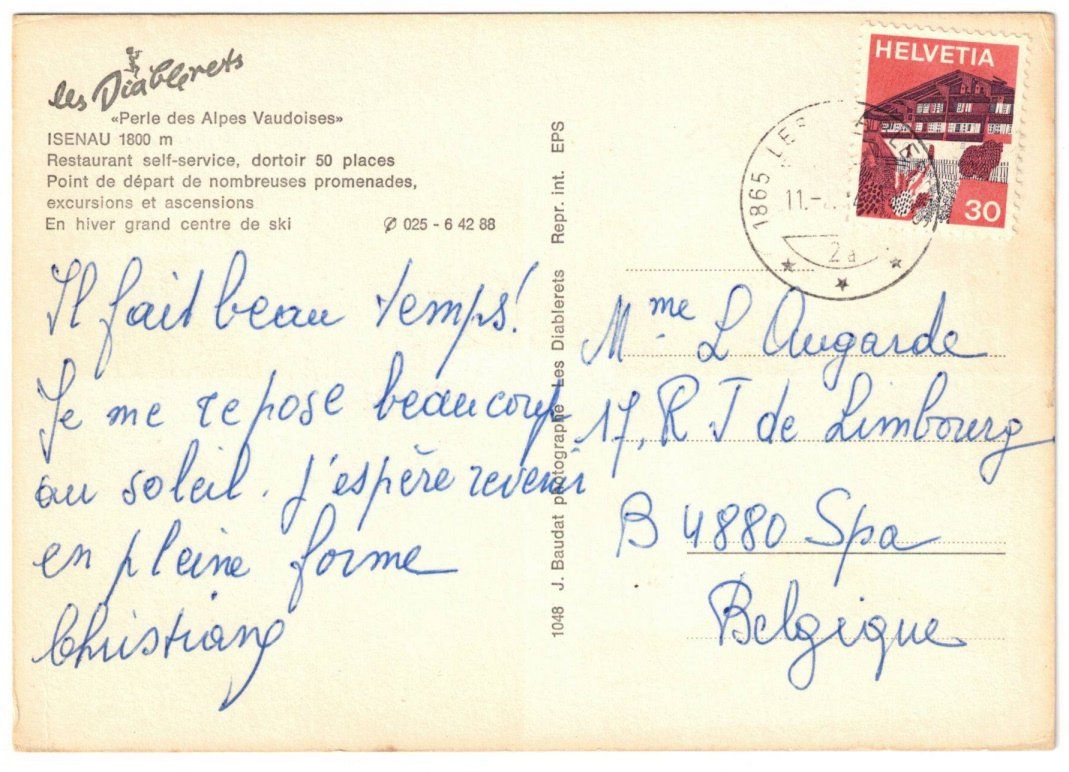 les Diablerets
«Perle des Alpes Vaudoises»
ISENAU 1800 m
Restaurant self-service, dortoir 50 places
Point de départ de nombreuses promenades,
excursions et ascensions
En hiver grand centre de ski ✆ 025 - 6 42 88
Il fait beau temps!
Je me repose beaucoup
au soleil. J'espère revenir
en pleine forme
1048 J. Baudat photographe Les Diablerets Repr. int. EPS
HELVETIA
30
1865 LES
11.-
2a
Mme L Augarde
17, R J de Limbourg
B 4880 Spa
Belgique